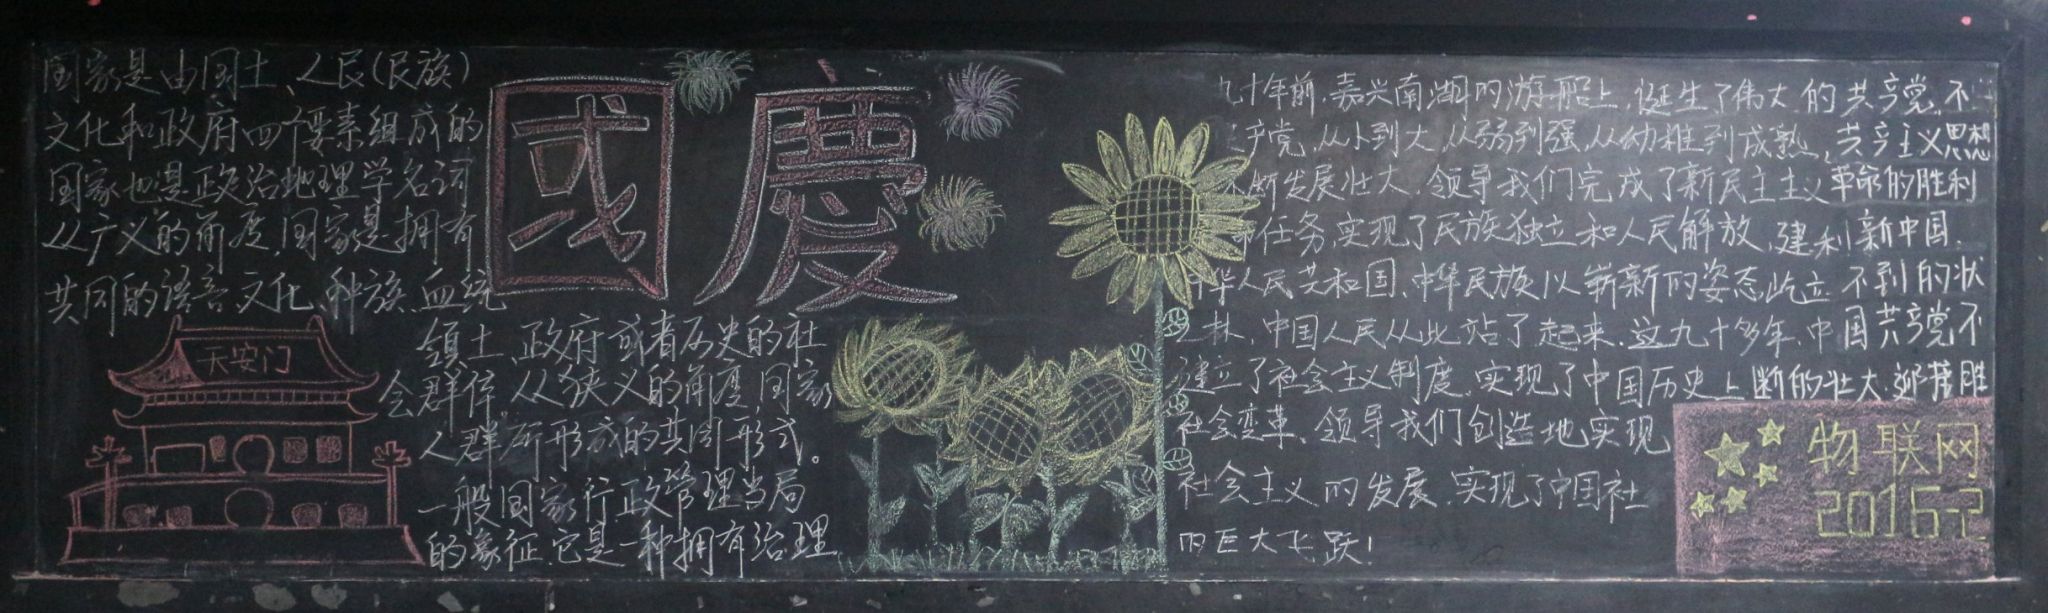 国家是由国土、人民(民族)
文化和政府四个要素组成的
国家也是政治地理学名词
从广义的角度,国家是拥有
共同的语言、文化、种族、血统
领土、政府或者历史的社
会群体 从狭义的角度 国家
人群所形成的共同形式。
一般国家行政管理当局
的象征,它是一种拥有治理
天安门
國慶
九十年前,嘉兴南湖的游船上,诞生了伟大的共产党,不
产党,从小到大,从弱到强,从幼稚到成熟,共产主义思想
断发展壮大,领导我们完成了新民主主义革命的胜利
任务,实现了民族独立和人民解放,建利新中国,
华人民共和国,中华民族以崭新的姿态屹立 不到的状
之林,中国人民从此站了起来,这九十多年,中国共产党不
建立了社会主义制度,实现了中国历史上断的壮大,
社会变革、领导我们创造地实现
社会主义的发展,实现了中国社
的巨大飞跃!
物联网
2016-2